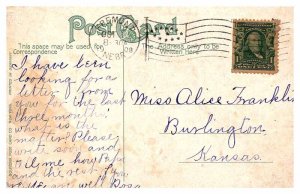 Post Card
FREMONT
NEBR.
This space may be used for correspondence
The Address only to be Written here
I have been
looking for a
letter from
you for the last
three months
what is the
matter. Please
write soon and
tell me how Papa
and the rest of
you are. well Rosa
Miss Alice Franklin
Burlington
Kansas.